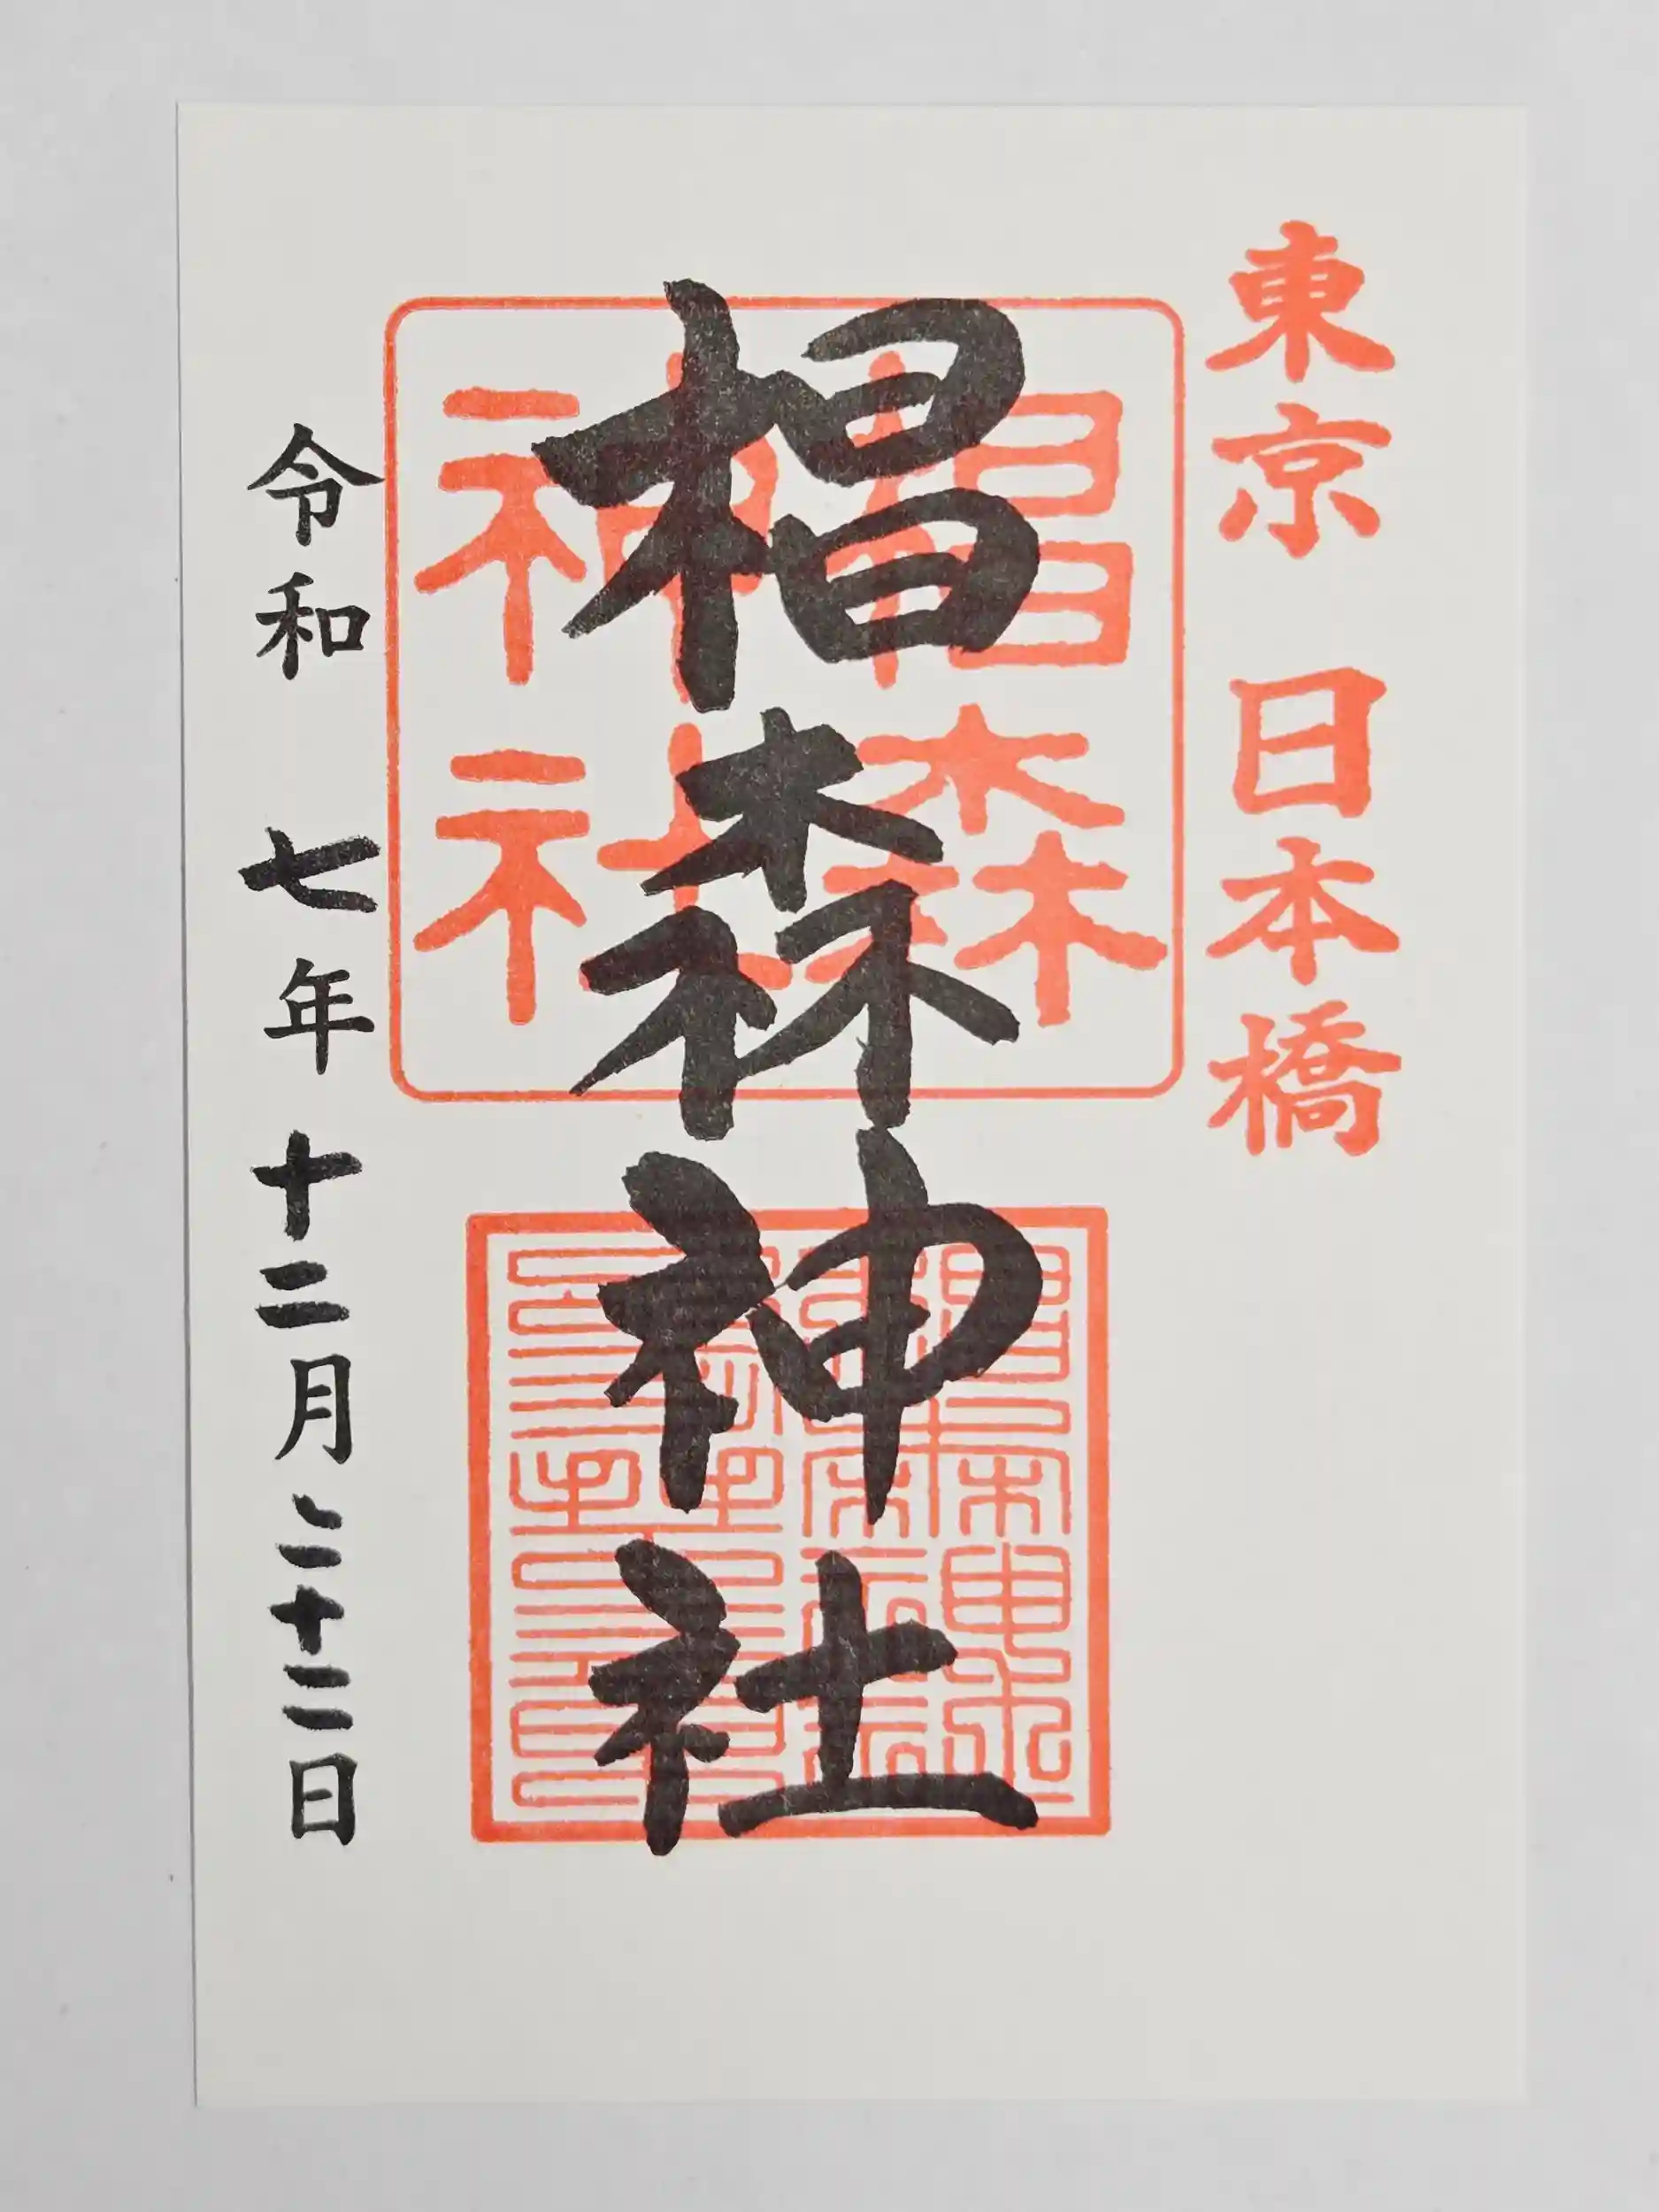 東京 日本橋
椙森神社
椙森
神社
令和 七年 十二月 二十二日